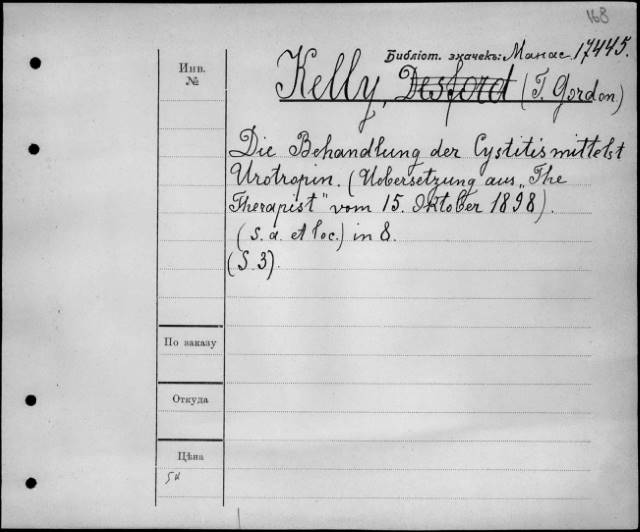 168
Библіот. значекъ: Манас 17445.
Инв.
№
Kelly, Desford (T. Gordon)
Die Behandlung der Cystitis mittelst
Urotropin. (Uebersetzung aus „The
Therapist" vom 15. Oktober 1898).
(S. a. et loc.) in 8.
(S. 3).
По заказу
Откуда
Цѣна